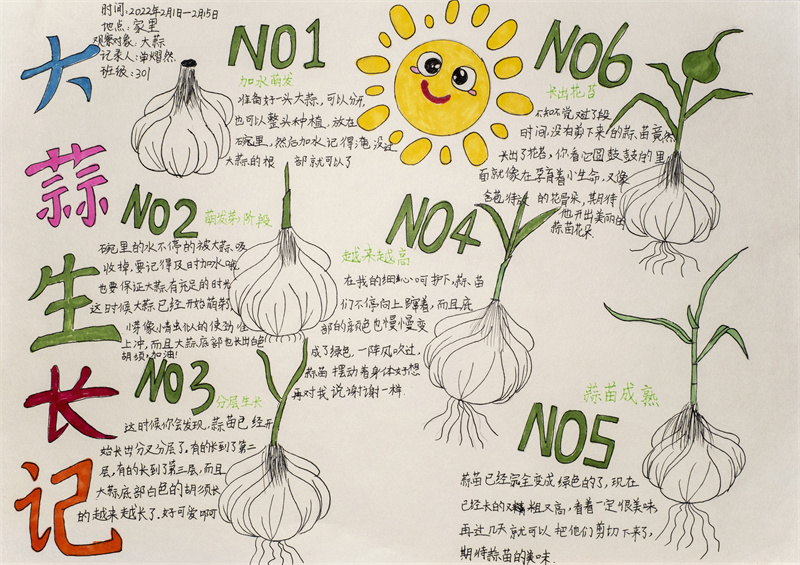 大蒜生长记
时间：2022年2月1日—2月15日
地点：家里
观察对象：大蒜
记录人：
班级：301
NO1
加水萌发
准备好一头大蒜，可以分开，
也可以整头种植，放在
碗里，然后加水记得淹没过
大蒜的根部就可以了
NO2
萌发芽阶段
碗里的水不停的被大蒜吸
收掉，要记得及时加水哦，
也要保证大蒜有充足的时光
这时候大蒜已经开始萌芽了
小芽像小青虫似的使劲往
上冲，而且大蒜底部也长出白色
胡须，加油！
NO3
分层生长
这时候你会发现，蒜苗已经开
始长出分叉分层了。有的长到了第二
层，有的长到了第三层，而且
大蒜底部白色的胡须长
的越来越长了。好可爱啊
NO4
越来越高
在我的细心呵护下，蒜苗
们不停向上蹿着，而且底
部的颜色也慢慢变
成了绿色，一阵风吹过，
蒜苗摆动着身体好想
再对我说谢谢一样.
NO5
蒜苗成熟
蒜苗已经完全变成绿色的了，现在
已经长的又粗又高，看着一定很美味
再过几天就可以把他们剪切下来了，
期待蒜苗的美味.
NO6
长出花苔
不知不觉又过了段
时间，没有剪下来的蒜苗竟然
长出了花苔，你看它圆鼓鼓的里
面就像在孕育着小生命，又像
含苞待放的花骨朵，期待
他开出美丽的
蒜苗花朵.